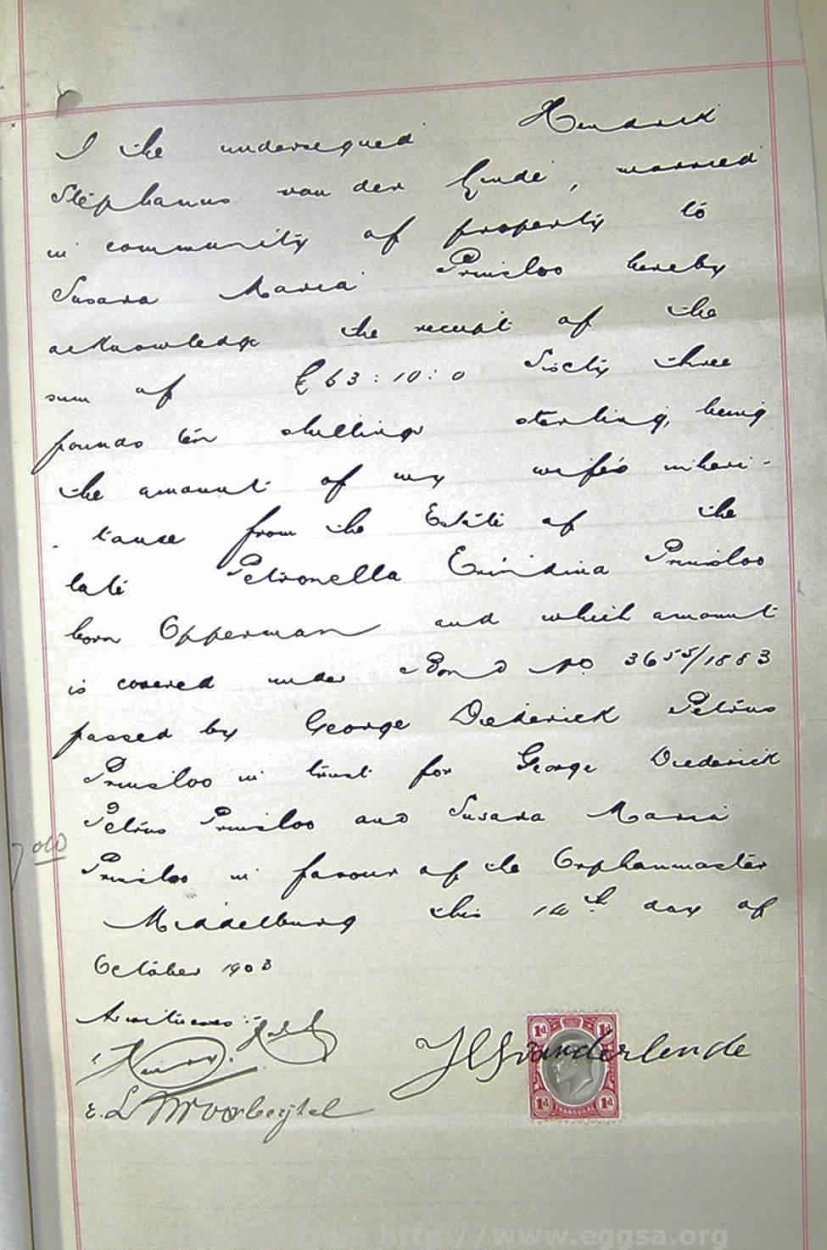 I the undersigned Hendrik
Stephanus van der Ende, married
in community of property to
Susara Maria Prinsloo hereby
acknowledge the receipt of the
sum of £63:10:0 Sixty three
pounds ten shillings sterling, being
the amount of my wife's inheri-
-tance from the Estate of the
late Petronella Prinsloo
born Opperman and which amount
is covered under Bond No. 3655/1883
passed by George Diederick Petrus
Prinsloo in trust for George Diederick
Petrus Prinsloo and Susara Maria
Prinsloo in favour of the Orphanmaster
Middelburg this 14th day of
October 1903
As witnesses:
vanderende
1d 1d
1d 1d
TRANSVAAL
http://www.eggsa.org